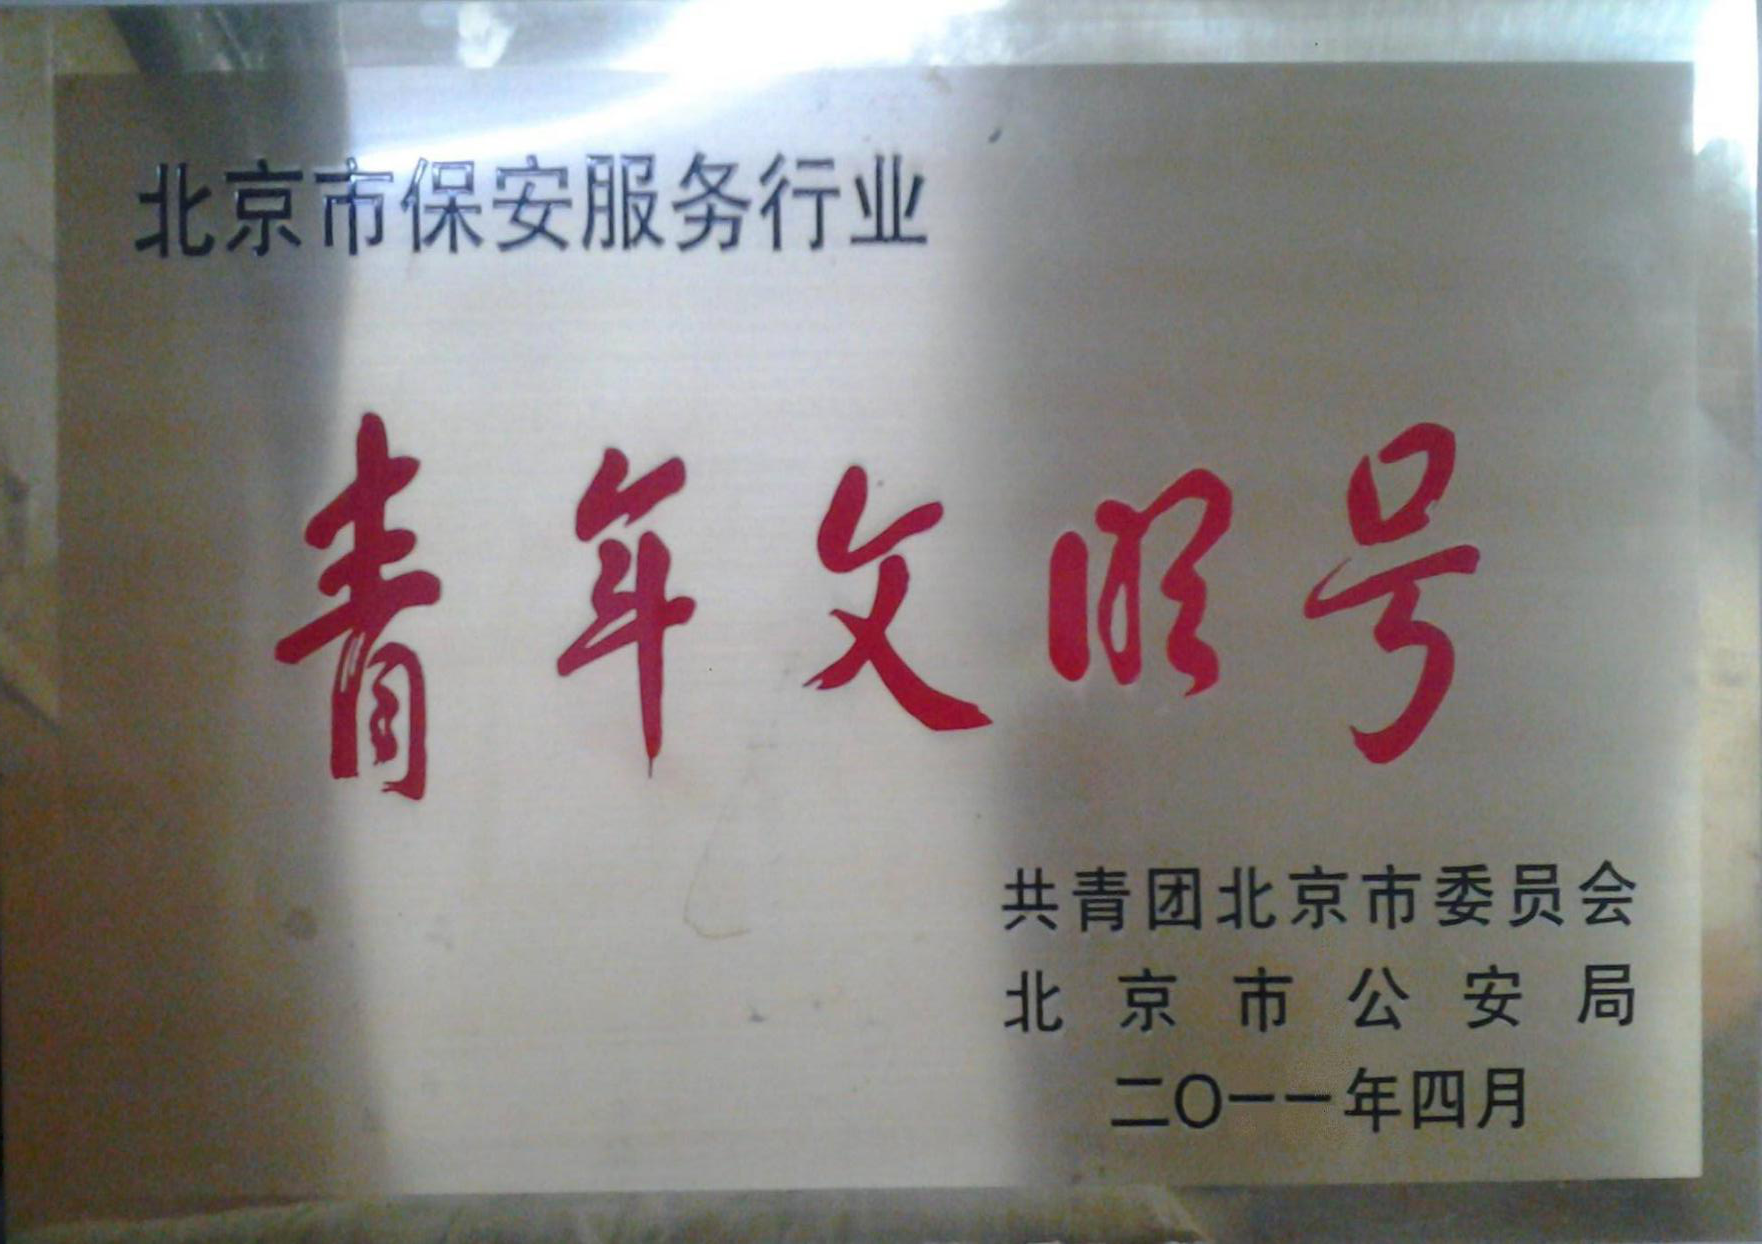 北京市保安服务行业
青年文明号
共青团北京市委员会
北京市公安局
二〇一一年四月